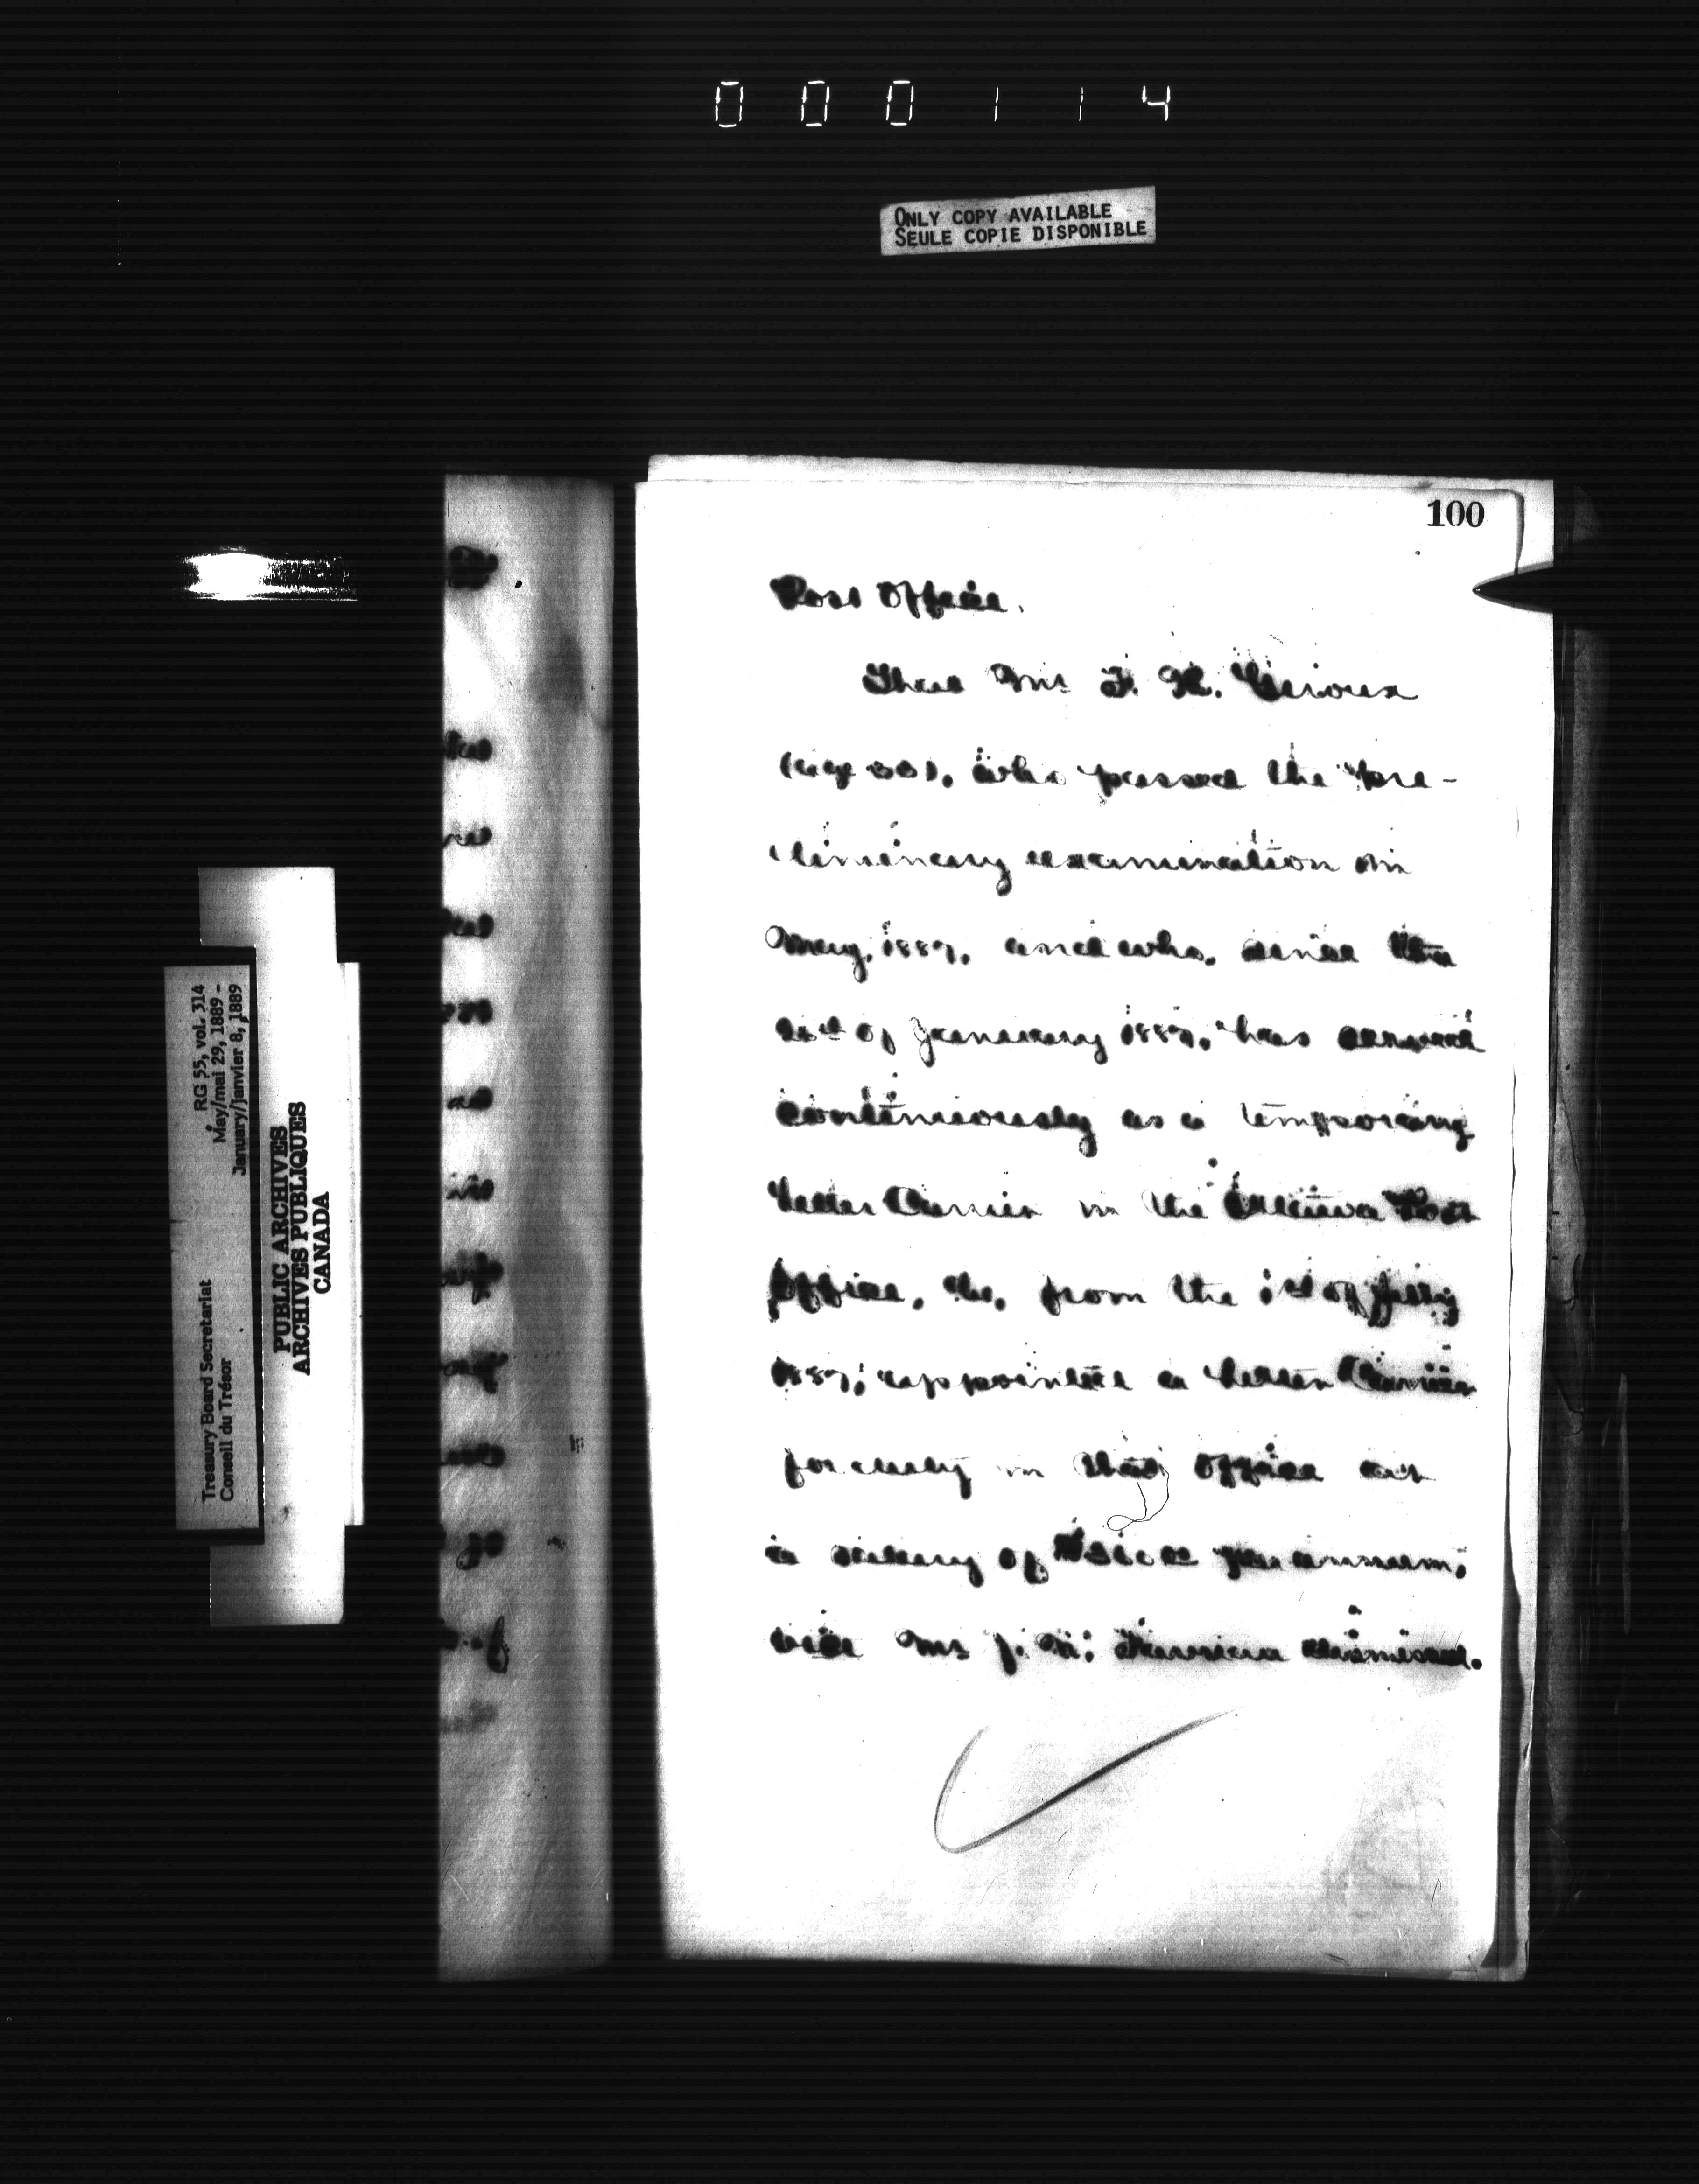 000114
ONLY COPY AVAILABLE
SEULE COPIE DISPONIBLE
100
Post Office.
That Mr F. R. Giroux
(age 33), who passed the pre-
liminary examination in
May, 1887, and who, since the
of January 1887, has served
continuously as a temporary
Letter Carrier in the Ottawa Post
Office, be, from the 1st of July
1887, appointed a Letter Carrier
for duty in that Office at
a salary of per annum,
vice Mr J. dismissed.
RG 55, vol. 314
May/mai 29, 1889 -
January/janvier 8, 1889
Treasury Board Secretariat
Conseil du Trésor
PUBLIC ARCHIVES
ARCHIVES PUBLIQUES
CANADA